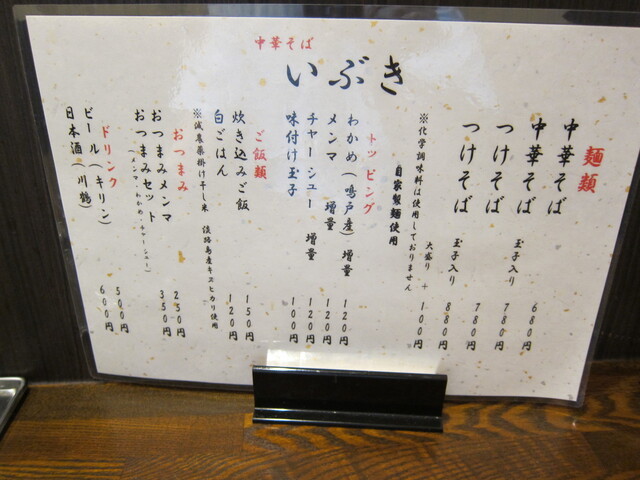 中華そば
いぶき
麺類
中華そば 680円
中華そば 玉子入り 780円
つけそば 780円
つけそば 玉子入り 880円
大盛り + 100円
自家製麺使用
※化学調味料は使用しておりません
トッピング
わかめ(鳴戸産)増量 120円
メンマ 増量 120円
チャーシュー 増量 120円
味付け玉子 100円
ご飯類
炊き込みご飯 150円
白ごはん 120円
※減農薬掛け干し米 淡路島産キヌヒカリ使用
おつまみ
おつまみメンマ 250円
おつまみセット 350円
(メンマ・わかめ・チャーシュー)
ドリンク
ビール(キリン) 500円
日本酒(川鶴) 600円